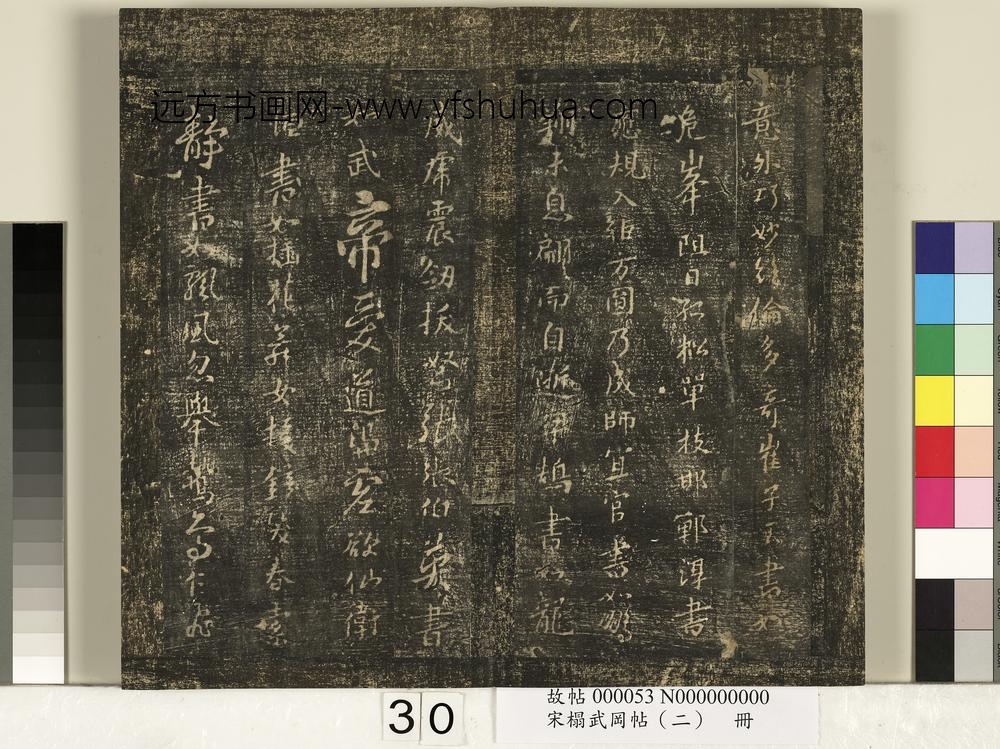 意外巧妙絶倫多奇崔子玉書如
危峯阻日孤松單枝邯鄲淳書
應規入矩方圓乃成師宜官書如鵬
翔未息翩翩而自逝梁鵠書如龍
威虎震劒拔弩張張伯英書如
武帝愛道馮虛欲仙衛
書如插花舞女援鏡笑春素
靜書如飄風忽舉鷙鳥乍飛
远方书画网-www.yfshuhua.com
30
故帖 000053 N000000000
宋榻武岡帖（二） 冊